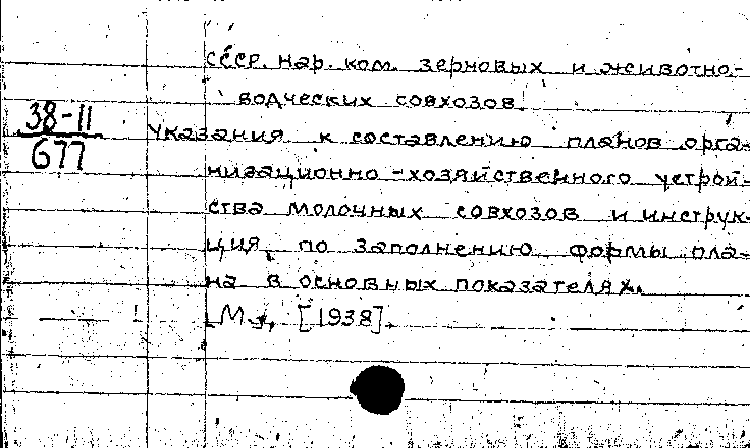 СССР. Нар. ком. зерновых и животно-
водческих совхозов.
38-11
677
Указания к составлению планов орга-
низационно-хозяйственного устрой-
ства молочных совхозов и инструк-
ция по заполнению формы пла-
на в основных показателях.
[М.], [1938].